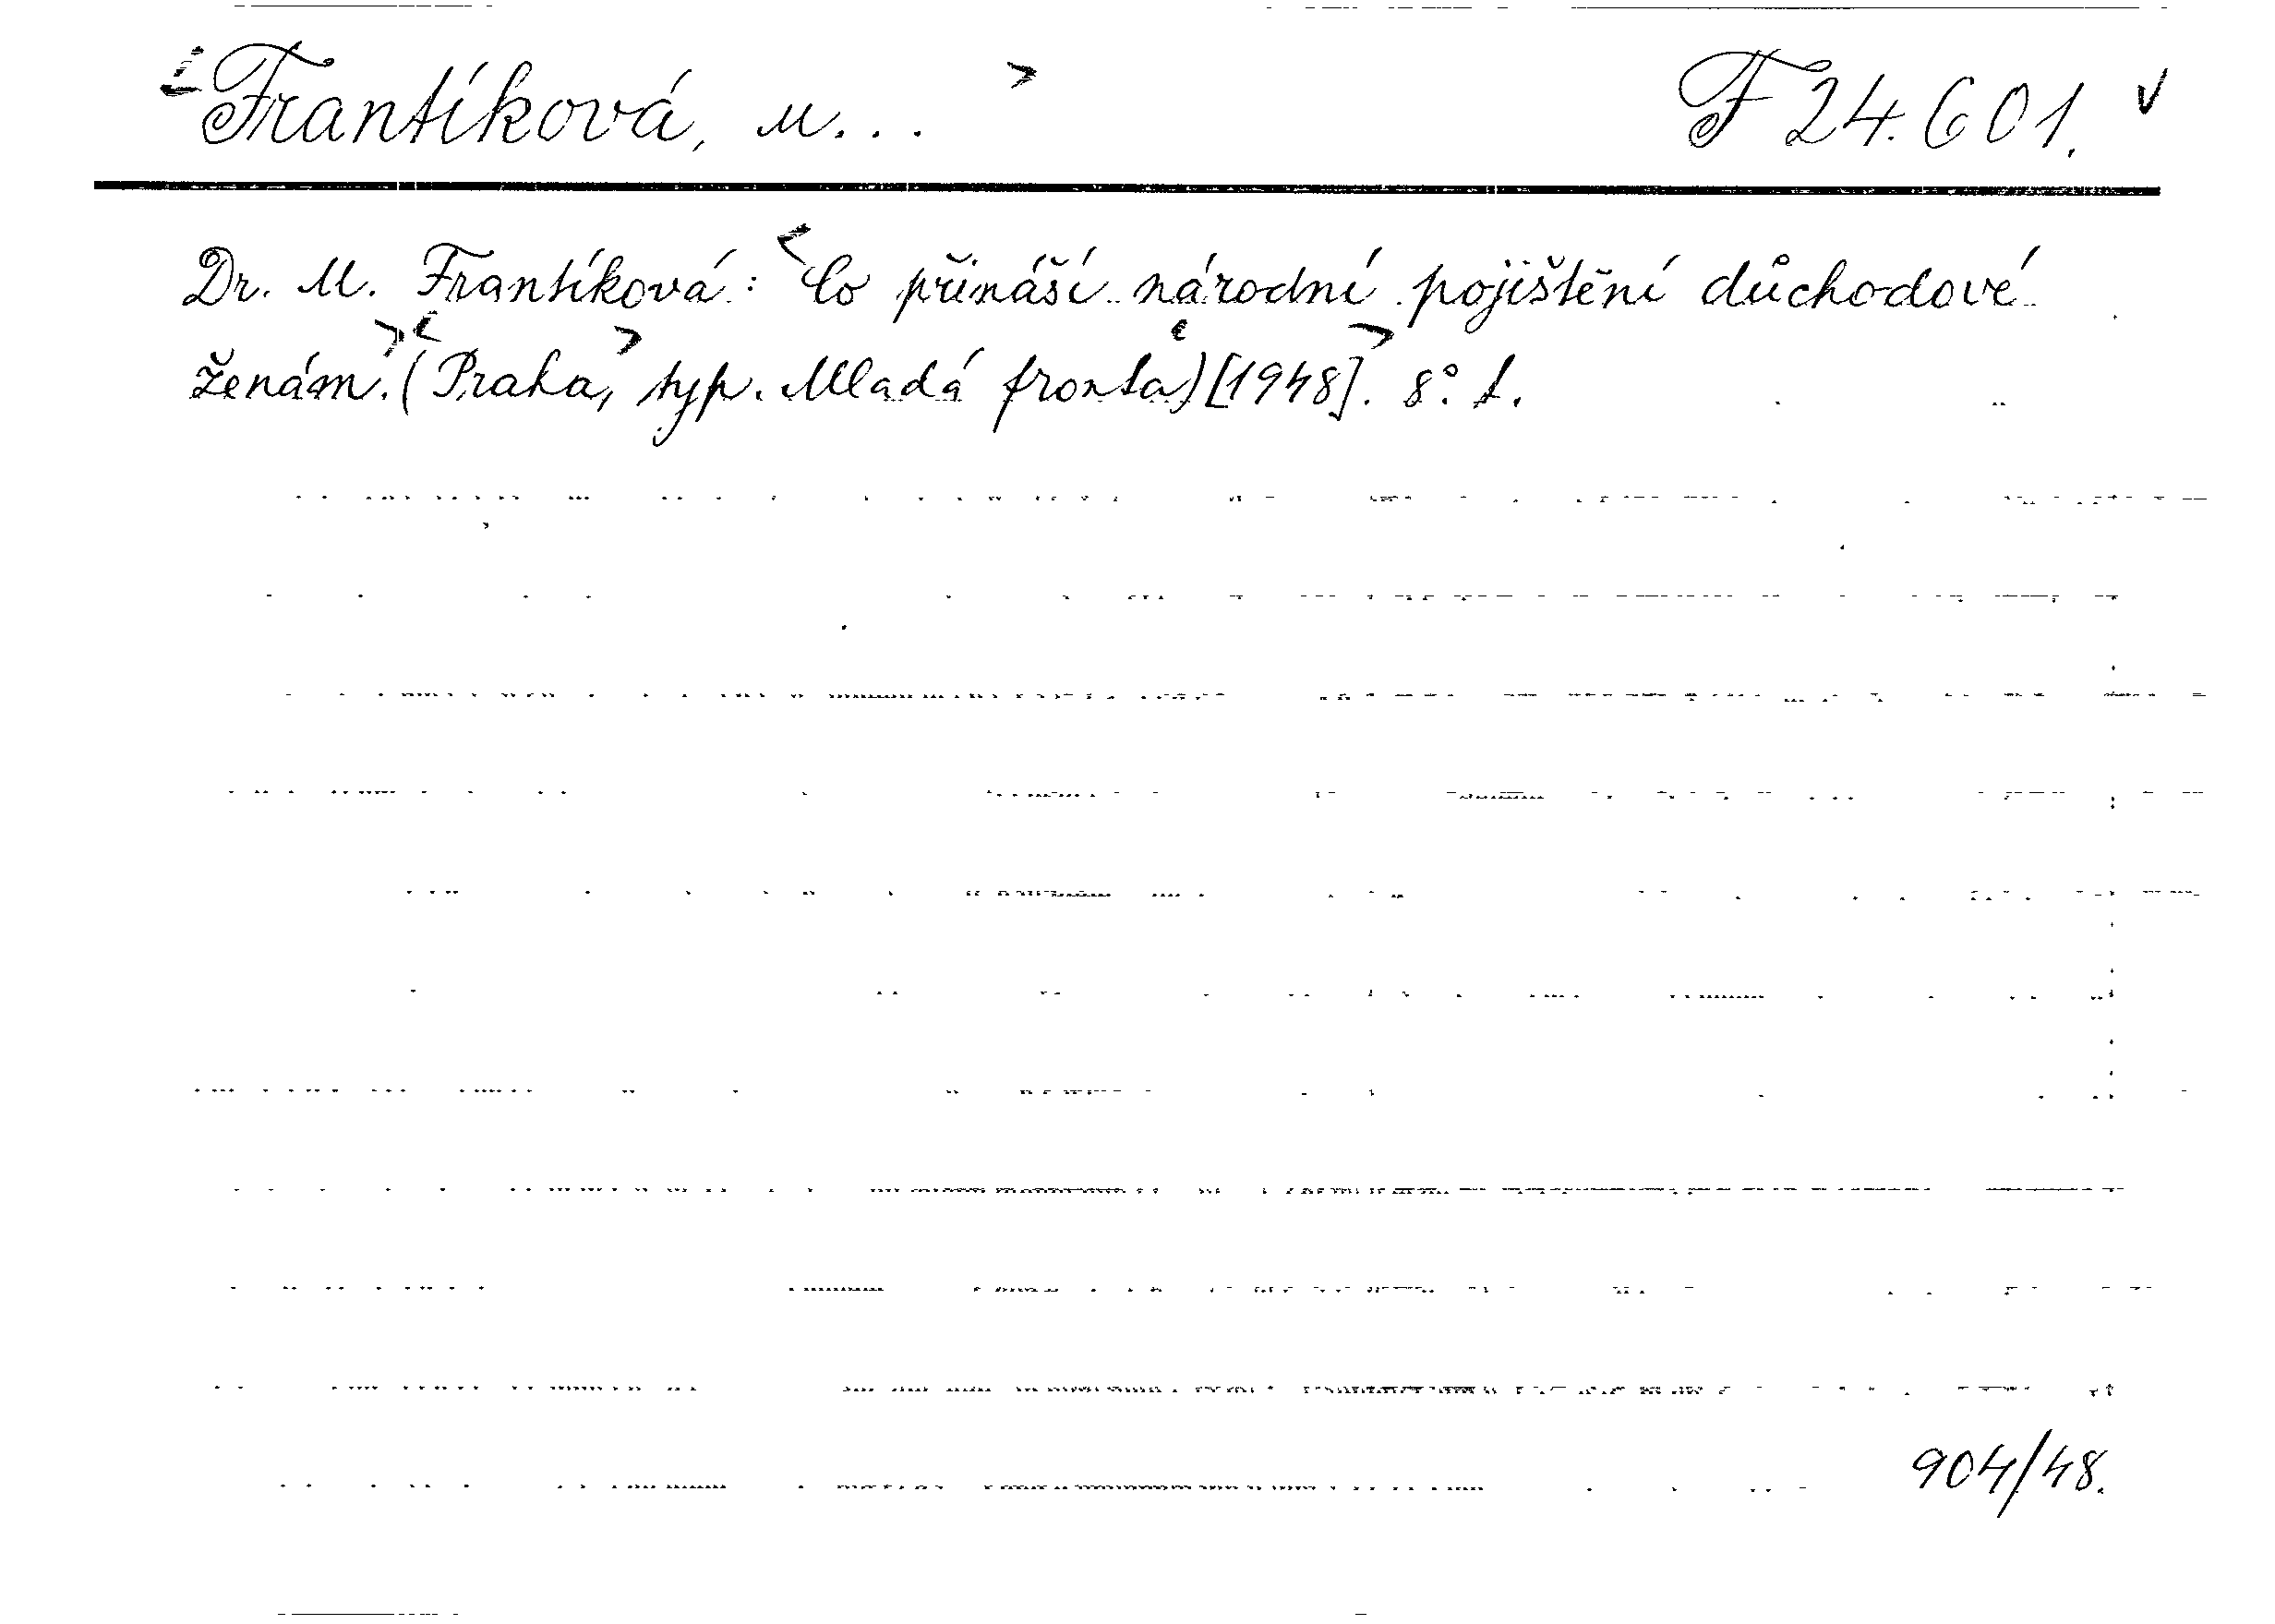 Frantíková, M... F 24.601.
Dr. M. Frantíková: Co přináší národní pojištění důchodové
ženám. (Praha, typ. Mladá fronta) [1948]. 8° f.
904/48.